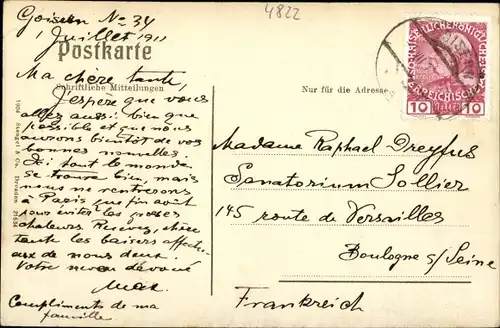 4822
Goisern No 34
1 Juillet 1911
Postkarte
Schriftliche Mitteilungen
Nur für die Adresse
Ma chère tante,
J'espère que vous
allez aussi bien que
possible et que nous
aurons bientôt de vos
bonnes nouvelles.
Ici tout le monde
se trouve bien, mais
nous ne rentrerons
à Paris que fin août
pour éviter les grosses
chaleurs. Recevez, chère
tante les baisers affectu-
eux de nous deux.
Votre neveu dévoué
Max
Compliments de ma
famille
Madame Raphael Dreyfus
Sanatorium Sollier
145 route de Versailles
Boulogne s/Seine
Frankreich
1904 Stengel & Co., Dresden
10 HELLER 10